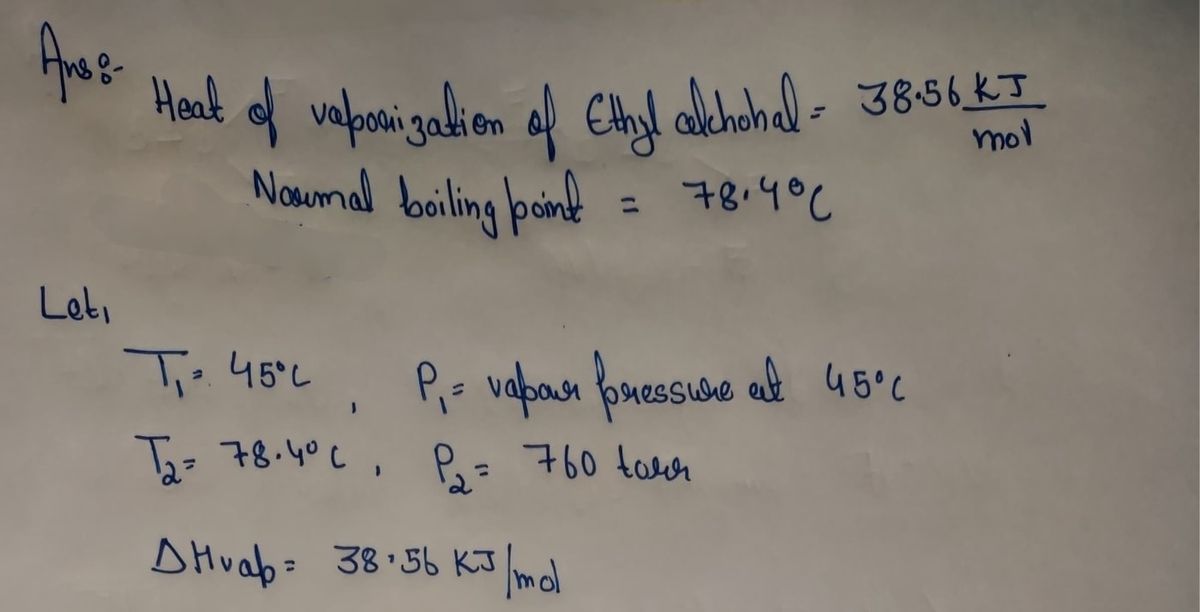 Ans:-
Heat of vaporization of Ethyl alchohal = 38.56 KJ/mol
Normal boiling point = 78.4°C
Let,
T₁ = 45°C , P₁ = vapour pressure at 45°C
T₂ = 78.4°C , P₂ = 760 torr
ΔHvap = 38.56 KJ/mol